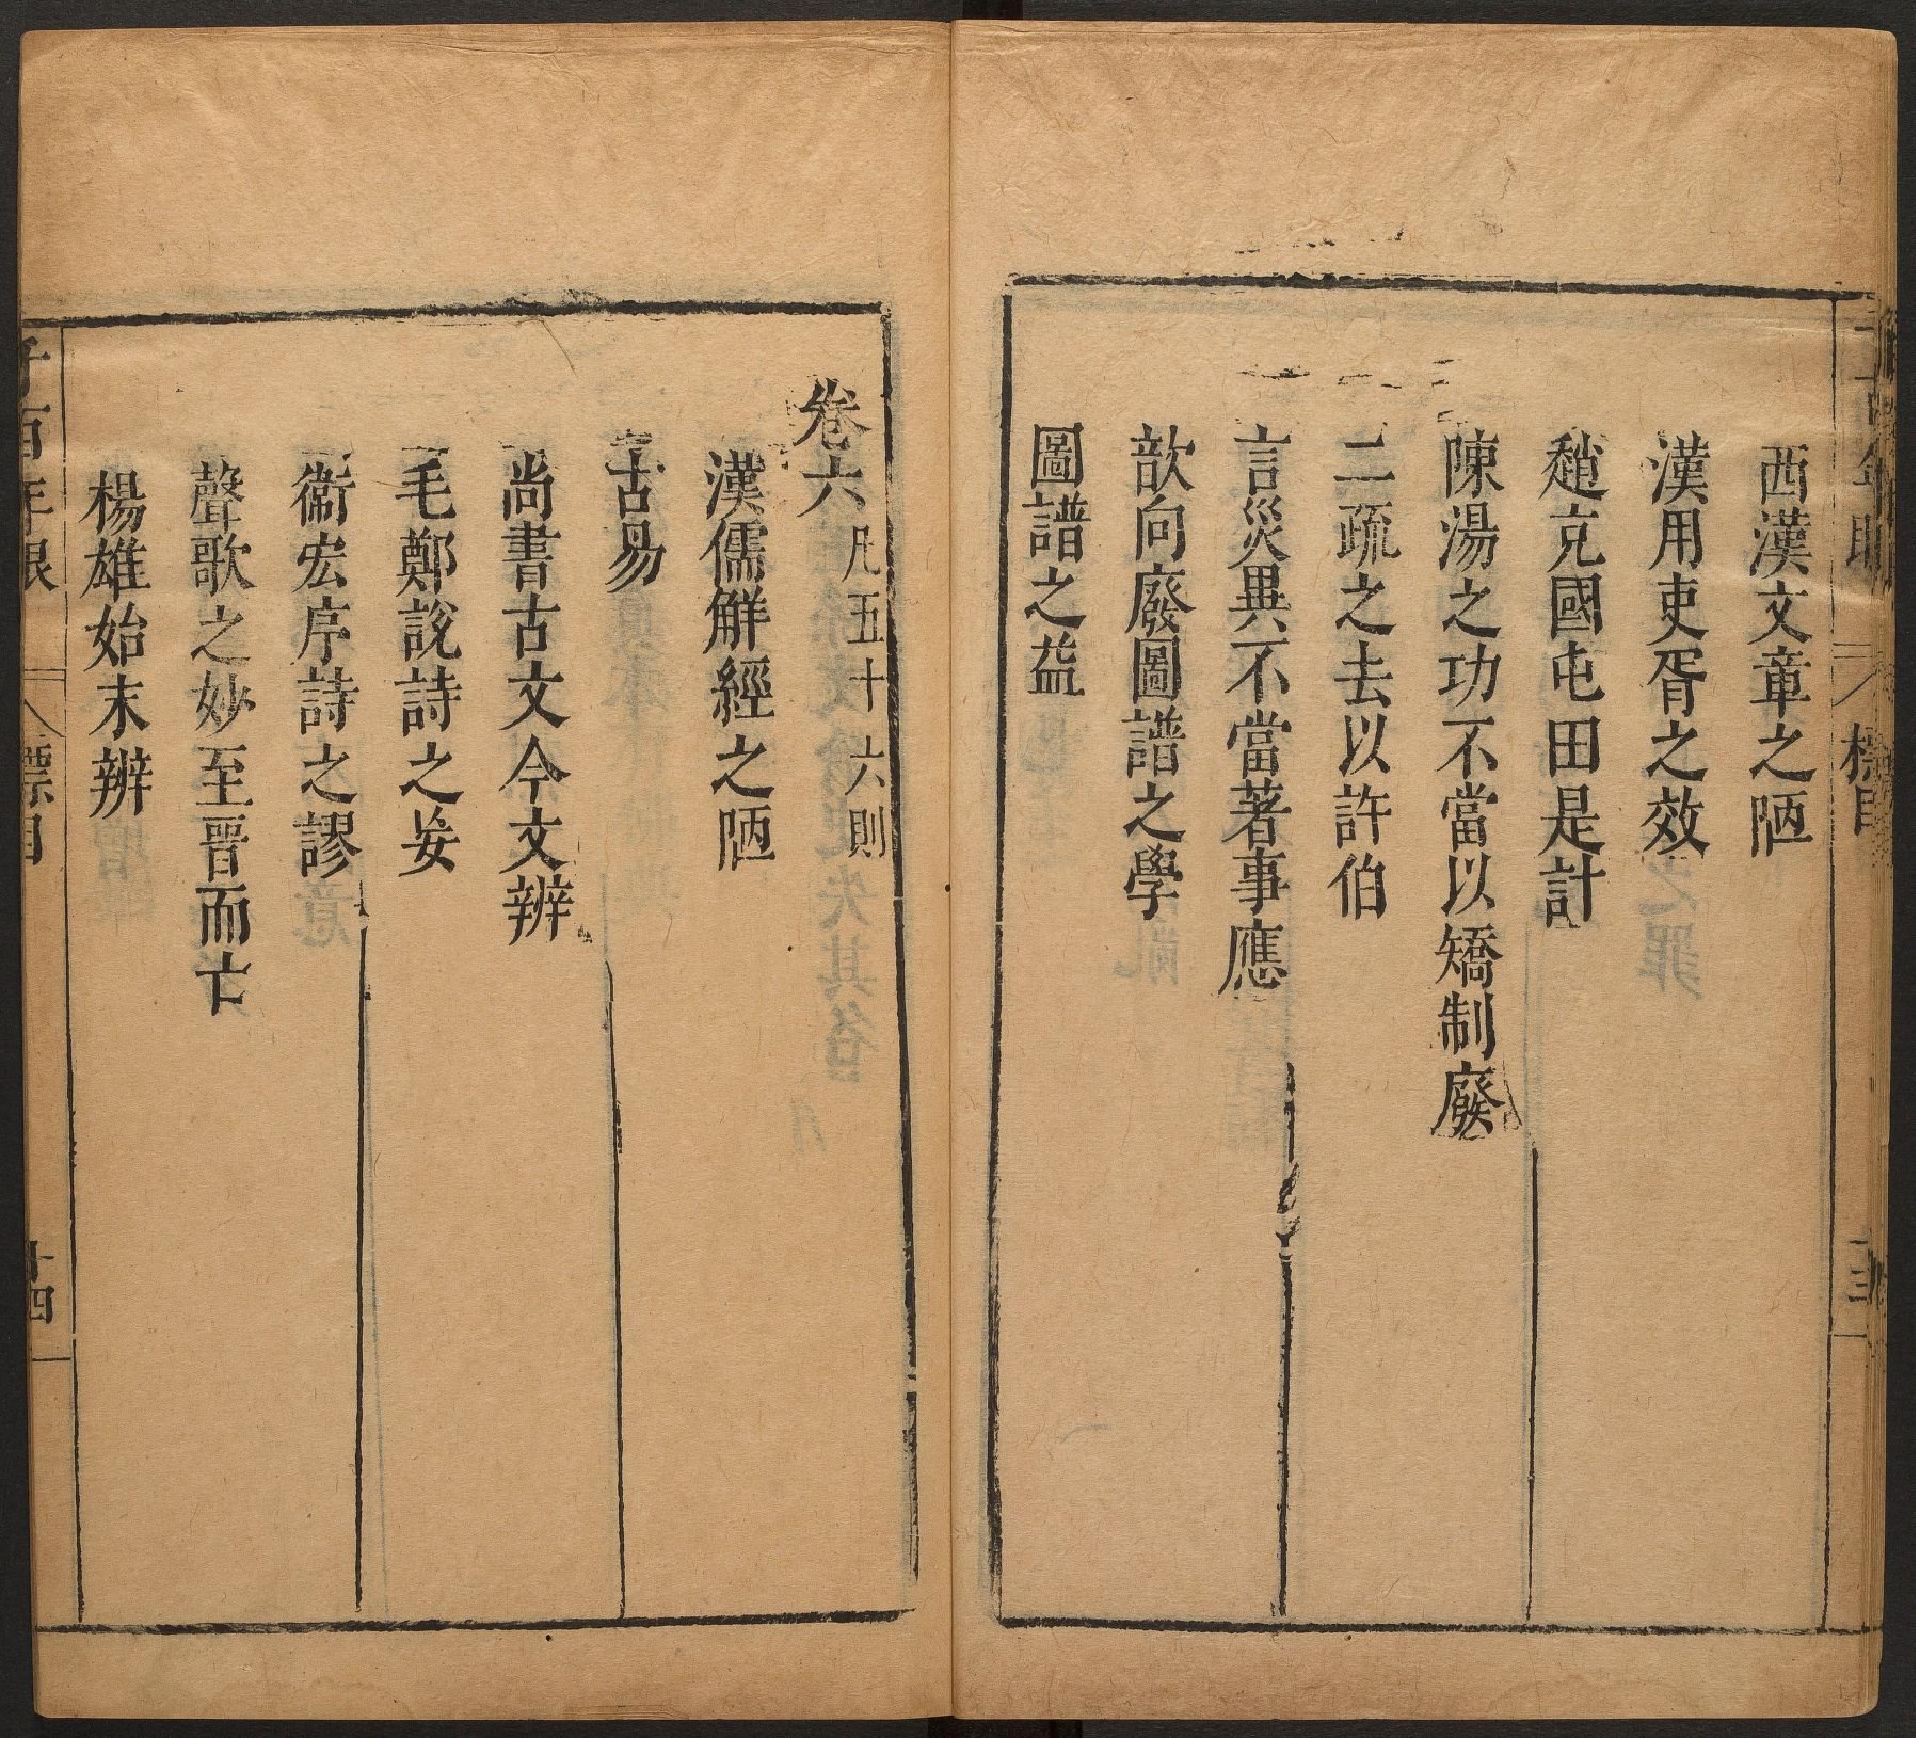 西漢文章之陋
漢用吏胥之效
趙充國屯田是計
陳湯之功不當以矯制廢
二疏之去以許伯
言災異不當著事應
歆向廢圖譜之學
圖譜之益
卷六凡五十六則
漢儒解經之陋
古易
尚書古文今文辨
毛鄭說詩之妄
衞宏序詩之謬
聲歌之妙至晉而亡
楊雄始末辨
千百年眼
標目
十四